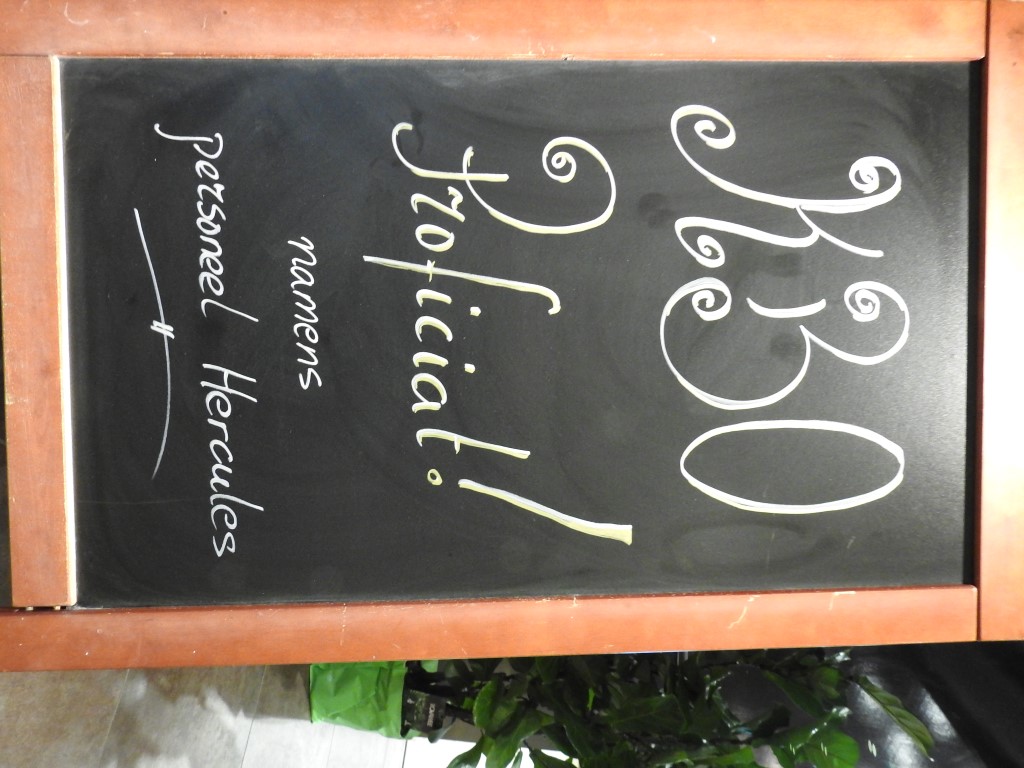 KBO
Proficiat!
namens
personeel Hercules